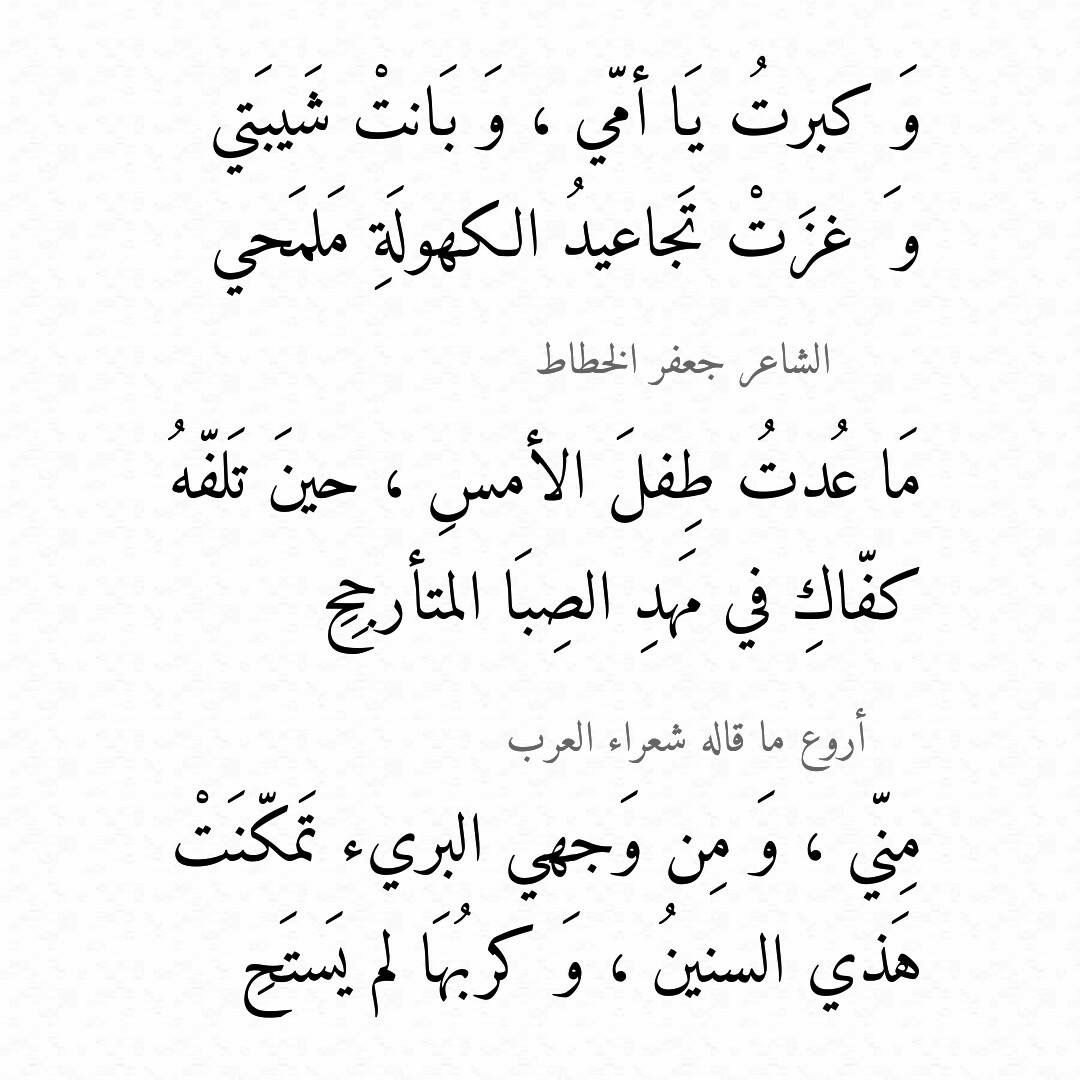 وَ كبرتُ يَا أمّي ، وَ بَانتْ شَيبَتي
وَ غزَتْ تَجاعيدُ الكهولَةِ مَلمَحي
الشاعر جعفر الخطاط
مَا عُدتُ طِفلَ الأمسِ ، حينَ تَلفّهُ
كفّاكِ في مَهدِ الصِبَا المتأرجِحِ
أروع ما قاله شعراء العرب
مِنّي ، وَ مِن وَجهي البريء تَمكّنَتْ
هَذي السنينُ ، وَ كربُهَا لم يَستَحِ